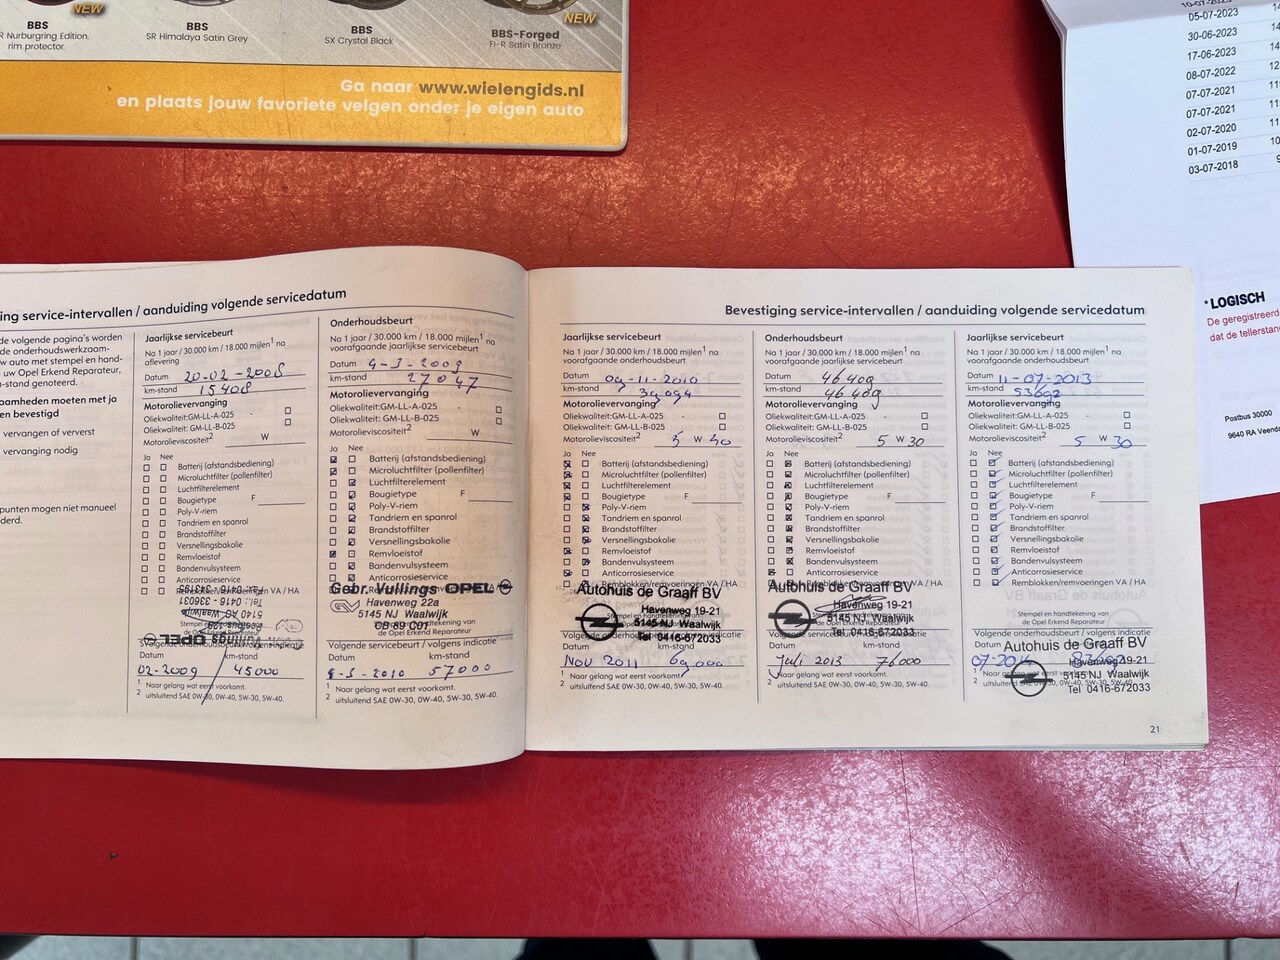 NEW
BBS
R Nurburgring Edition,
rim protector
BBS
SR Himalaya Satin Grey
BBS
SX Crystal Black
NEW
BBS-Forged
FI-R Satin Bronze
Ga naar www.wielengids.nl
en plaats jouw favoriete velgen onder je eigen auto
10-07-2023
05-07-2023
30-06-2023
17-06-2023
08-07-2022
07-07-2021
07-07-2021
02-07-2020
01-07-2019
03-07-2018
* LOGISCH
De geregistreerd
dat de tellerstand
Postbus 30000
9640 RA Veend
ing service-intervallen / aanduiding volgende servicedatum
de volgende pagina's worden
de onderhoudswerkzaam-
w auto met stempel en hand-
uw Opel Erkend Reparateur,
n-stand genoteerd.
aamheden moeten met ja
en bevestigd
vervangen of ververst
vervanging nodig
punten mogen niet manueel
derd.
Jaarlijkse servicebeurt
Na 1 jaar / 30.000 km / 18.000 mijlen1 na
aflevering
Datum 20-02-2008
km-stand 15408
Motorolievervanging
Oliekwaliteit: GM-LL-A-025
Oliekwaliteit: GM-LL-B-025
Motorolieviscositeit2 W
Ja Nee
Batterij (afstandsbediening)
Microluchtfilter (pollenfilter)
Luchtfilterelement
Bougietype F
Poly-V-riem
Tandriem en spanrol
Brandstoffilter
Versnellingsbakolie
Remvloeistof
Bandenvulsysteem
Anticorrosieservice
Remblokken/remvoeringen VA / HA
Tel.: 0416 - 336031
5140 AG Waalwijk
Vullings OPEL
Datum km-stand
02-2009 45000
1 Naar gelang wat eerst voorkomt.
2 uitsluitend SAE 0W-30, 0W-40, 5W-30, 5W-40.
Onderhoudsbeurt
Na 1 jaar / 30.000 km / 18.000 mijlen1 na
voorafgaande jaarlijkse servicebeurt
Datum 4-3-2009
km-stand 27047
Motorolievervanging
Oliekwaliteit: GM-LL-A-025
Oliekwaliteit: GM-LL-B-025
Motorolieviscositeit2 W
Ja Nee
Batterij (afstandsbediening)
Microluchtfilter (pollenfilter)
Luchtfilterelement
Bougietype F
Poly-V-riem
Tandriem en spanrol
Brandstoffilter
Versnellingsbakolie
Remvloeistof
Bandenvulsysteem
Anticorrosieservice
Gebr. Vullings OPEL
Havenweg 22a
5145 NJ Waalwijk
OB 89 C01
de Opel Erkend Reparateur
Volgende servicebeurt / volgens indicatie
Datum km-stand
4-3-2010 57000
1 Naar gelang wat eerst voorkomt.
2 uitsluitend SAE 0W-30, 0W-40, 5W-30, 5W-40.
Bevestiging service-intervallen / aanduiding volgende servicedatum
Jaarlijkse servicebeurt
Na 1 jaar / 30.000 km / 18.000 mijlen1 na
voorafgaande onderhoudsbeurt
Datum 09-11-2010
km-stand 39094
Motorolievervanging
Oliekwaliteit: GM-LL-A-025
Oliekwaliteit: GM-LL-B-025
Motorolieviscositeit2 5 W 40
Ja Nee
Batterij (afstandsbediening)
Microluchtfilter (pollenfilter)
Luchtfilterelement
Bougietype F
Poly-V-riem
Tandriem en spanrol
Brandstoffilter
Versnellingsbakolie
Remvloeistof
Bandenvulsysteem
Anticorrosieservice
Remblokken/remvoeringen VA / HA
Autohuis de Graaff BV
Havenweg 19-21
5145 NJ Waalwijk
Tel 0416-672033
Datum km-stand
Nov 2011 69000
1 Naar gelang wat eerst voorkomt.
2 uitsluitend SAE 0W-30, 0W-40, 5W-30, 5W-40.
Onderhoudsbeurt
Na 1 jaar / 30.000 km / 18.000 mijlen1 na
voorafgaande jaarlijkse servicebeurt
Datum 46409
km-stand 46409
Motorolievervanging
Oliekwaliteit: GM-LL-A-025
Oliekwaliteit: GM-LL-B-025
Motorolieviscositeit2 5 W 30
Ja Nee
Batterij (afstandsbediening)
Microluchtfilter (pollenfilter)
Luchtfilterelement
Bougietype F
Poly-V-riem
Tandriem en spanrol
Brandstoffilter
Versnellingsbakolie
Remvloeistof
Bandenvulsysteem
Anticorrosieservice
Remblokken/remvoeringen VA / HA
Autohuis de Graaff BV
Havenweg 19-21
5145 NJ Waalwijk
Tel 0416-672033
Datum km-stand
Juli 2013 76000
1 Naar gelang wat eerst voorkomt.
2 uitsluitend SAE 0W-30, 0W-40, 5W-30, 5W-40.
Jaarlijkse servicebeurt
Na 1 jaar / 30.000 km / 18.000 mijlen1 na
voorafgaande onderhoudsbeurt
Datum 11-07-2013
km-stand 53692
Motorolievervanging
Oliekwaliteit: GM-LL-A-025
Oliekwaliteit: GM-LL-B-025
Motorolieviscositeit2 5 W 30
Ja Nee
Batterij (afstandsbediening)
Microluchtfilter (pollenfilter)
Luchtfilterelement
Bougietype F
Poly-V-riem
Tandriem en spanrol
Brandstoffilter
Versnellingsbakolie
Remvloeistof
Bandenvulsysteem
Anticorrosieservice
Remblokken/remvoeringen VA / HA
Stempel en handtekening van
de Opel Erkend Reparateur
Volgende onderhoudsbeurt / volgens indicatie
Autohuis de Graaff BV
Datum km-stand
07-2014 83692
Havenweg 19-21
5145 NJ Waalwijk
Tel 0416-672033
21